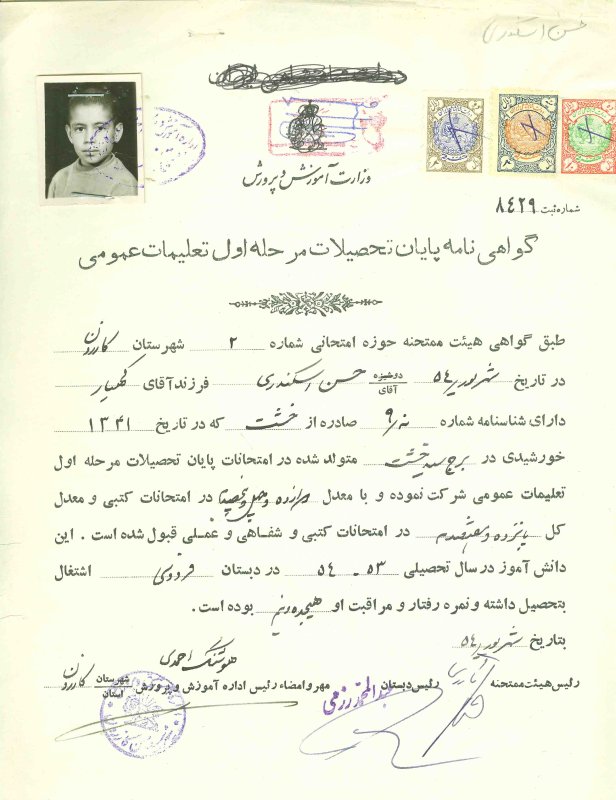 حسن اسکندری
وزارت آموزش و پرورش
شماره ثبت ۸۴۲۹
گواهی نامه پایان تحصیلات مرحله اول تعلیمات عمومی
طبق گواهی هیئت ممتحنه حوزه امتحانی شماره ۲ شهرستان کازرون
در تاریخ شهریور ۵۴ دوشیزه آقای حسن اسکندری فرزند آقای
دارای شناسنامه شماره صادره از خشت که در تاریخ ۱۳۴۱
خورشیدی در برج سید خشت متولد شده در امتحانات پایان تحصیلات مرحله اول
تعلیمات عمومی شرکت نموده و با معدل در امتحانات کتبی و معدل
کل پانزده و در امتحانات کتبی و شفاهی و عملی قبول شده است . این
دانش آموز در سال تحصیلی ۵۳ - ۵۴ در دبستان فردوسی اشتغال
بتحصیل داشته و نمره رفتار و مراقبت او هیجده و نیم بوده است.
بتاریخ شهریور ۵۴
هوشنگ احمدی
رئیس هیئت ممتحنه رئیس دبستان مهر و امضاء رئیس اداره آموزش و پرورش شهرستان استان کازرون